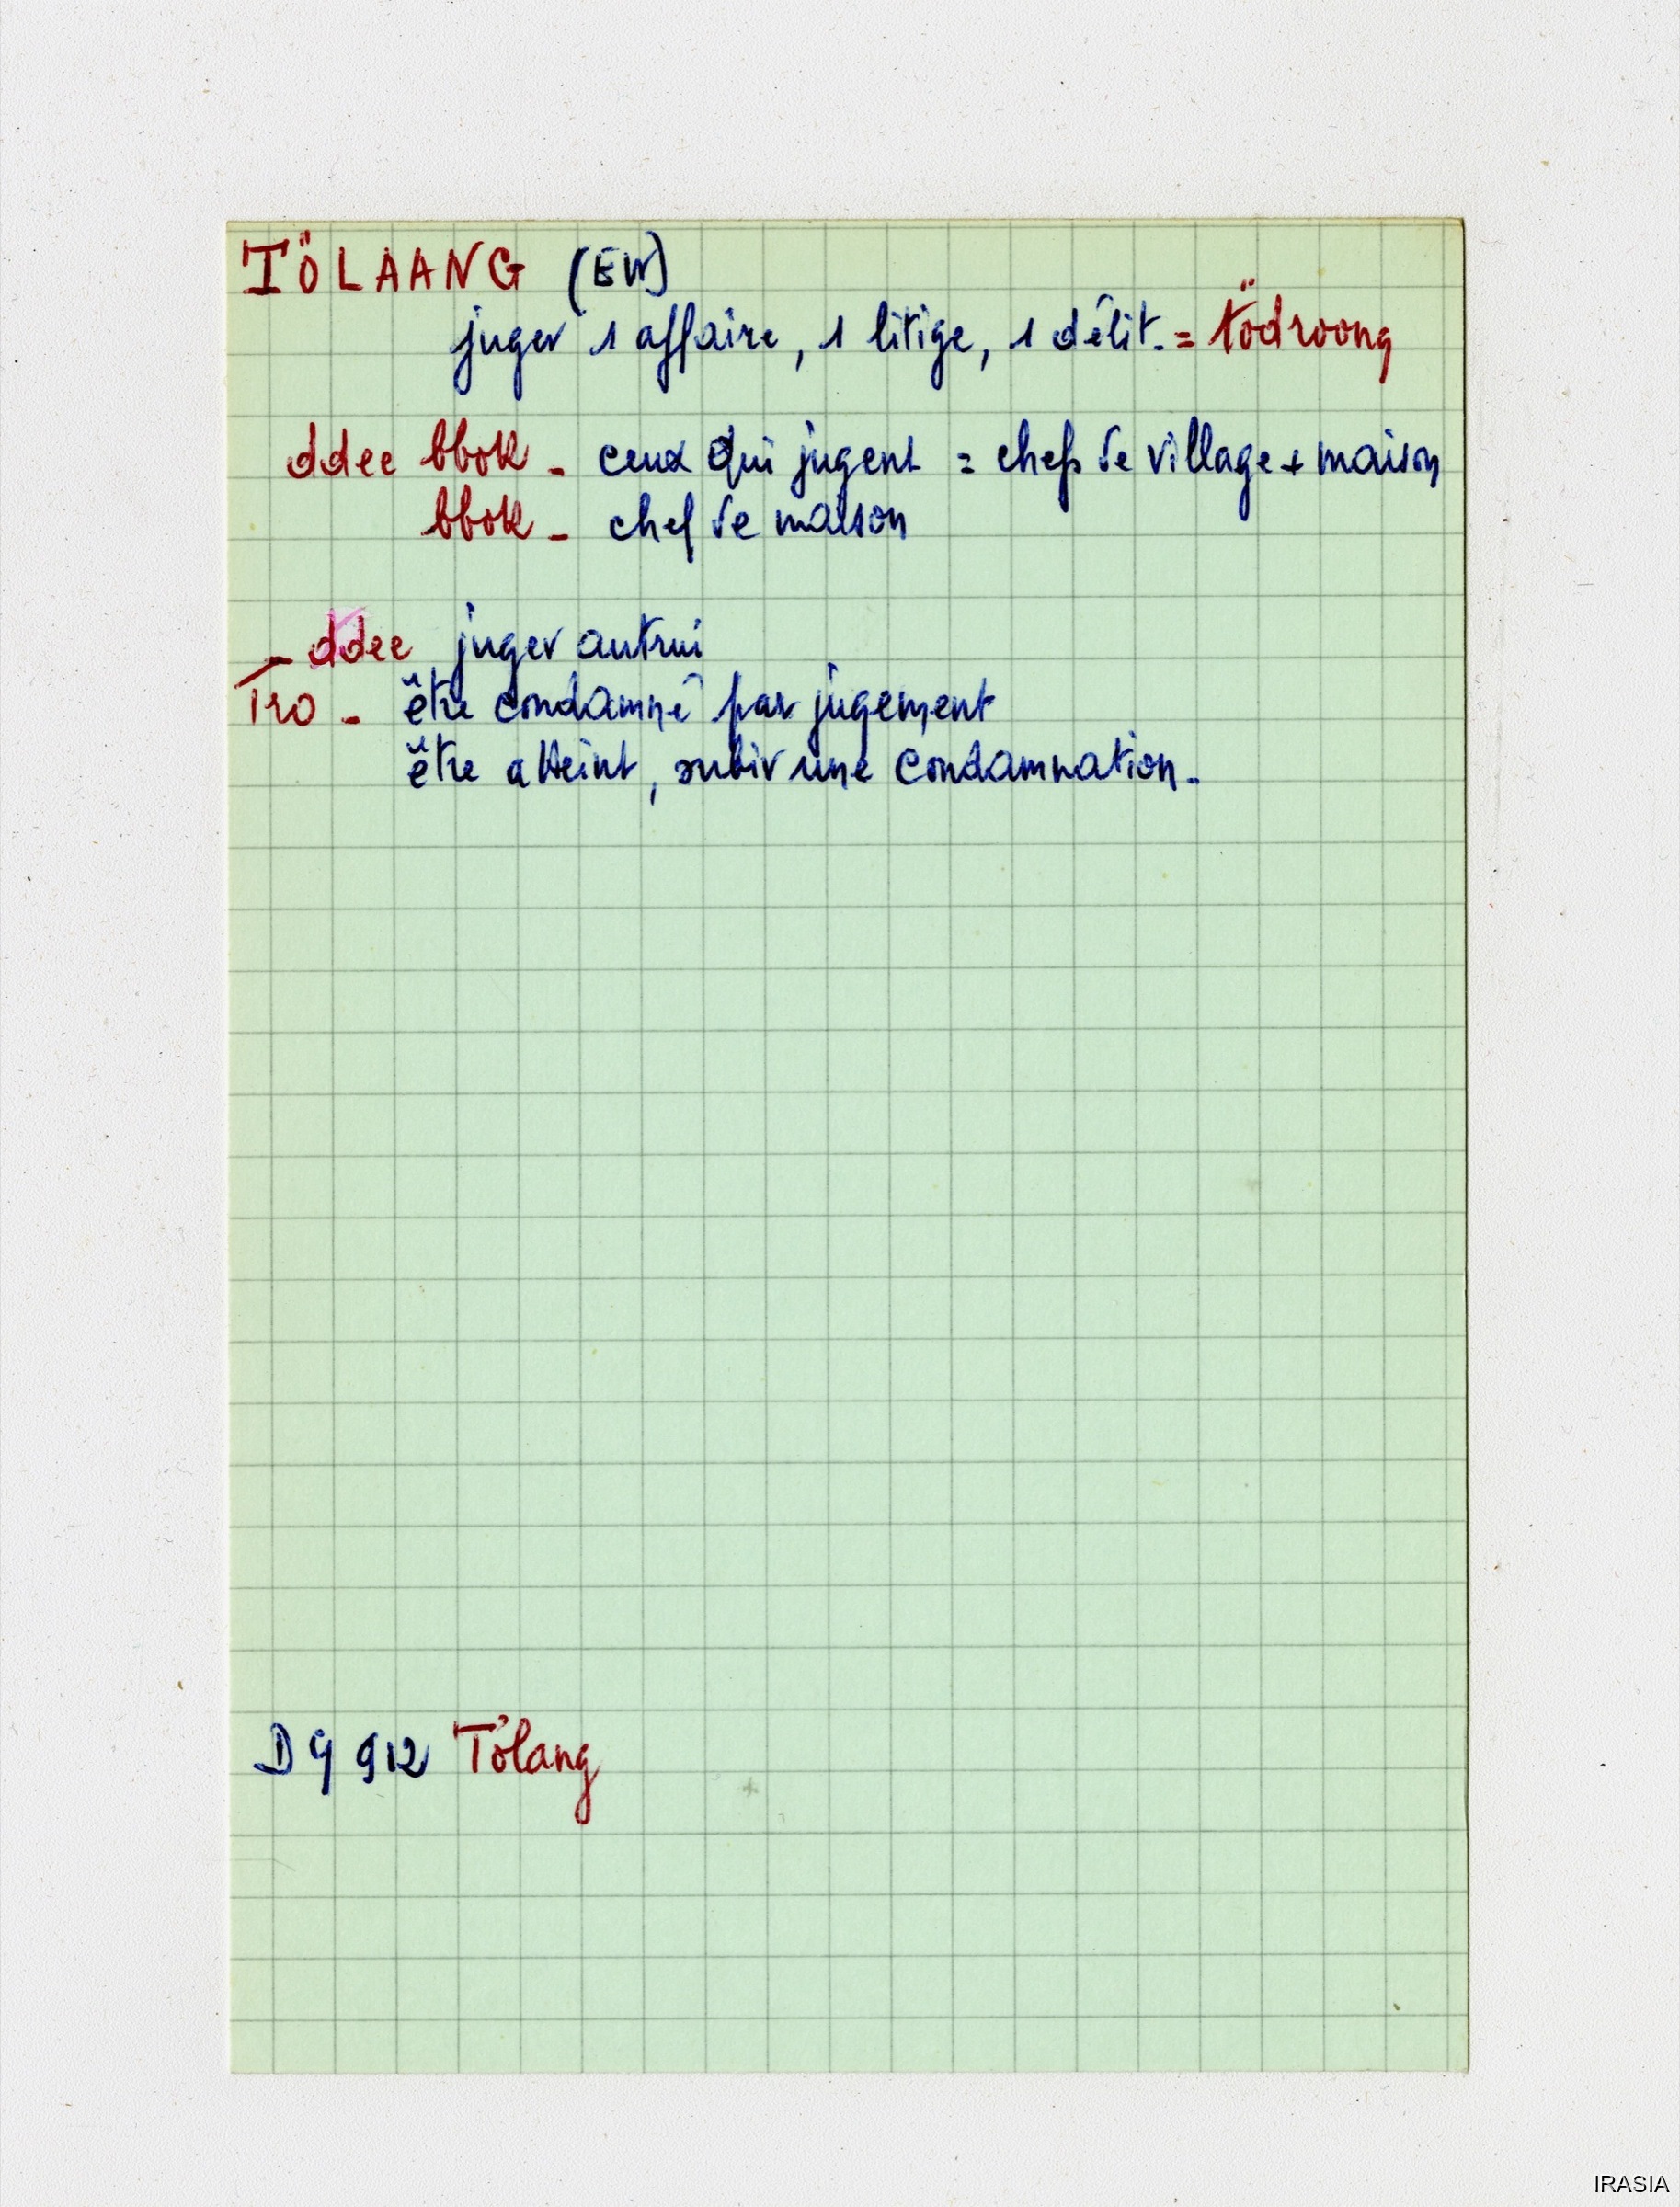 TÖLAANG (EW)
juger 1 affaire, 1 litige, 1 délit. = tödroong
ddee bbok - ceux qui jugent = chefs de village + maison
bbok - chef de maison
- ddee juger autrui
Tro - être condamné par jugement
être atteint, subir une condamnation.
D 9 912 Tölang
IRASIA